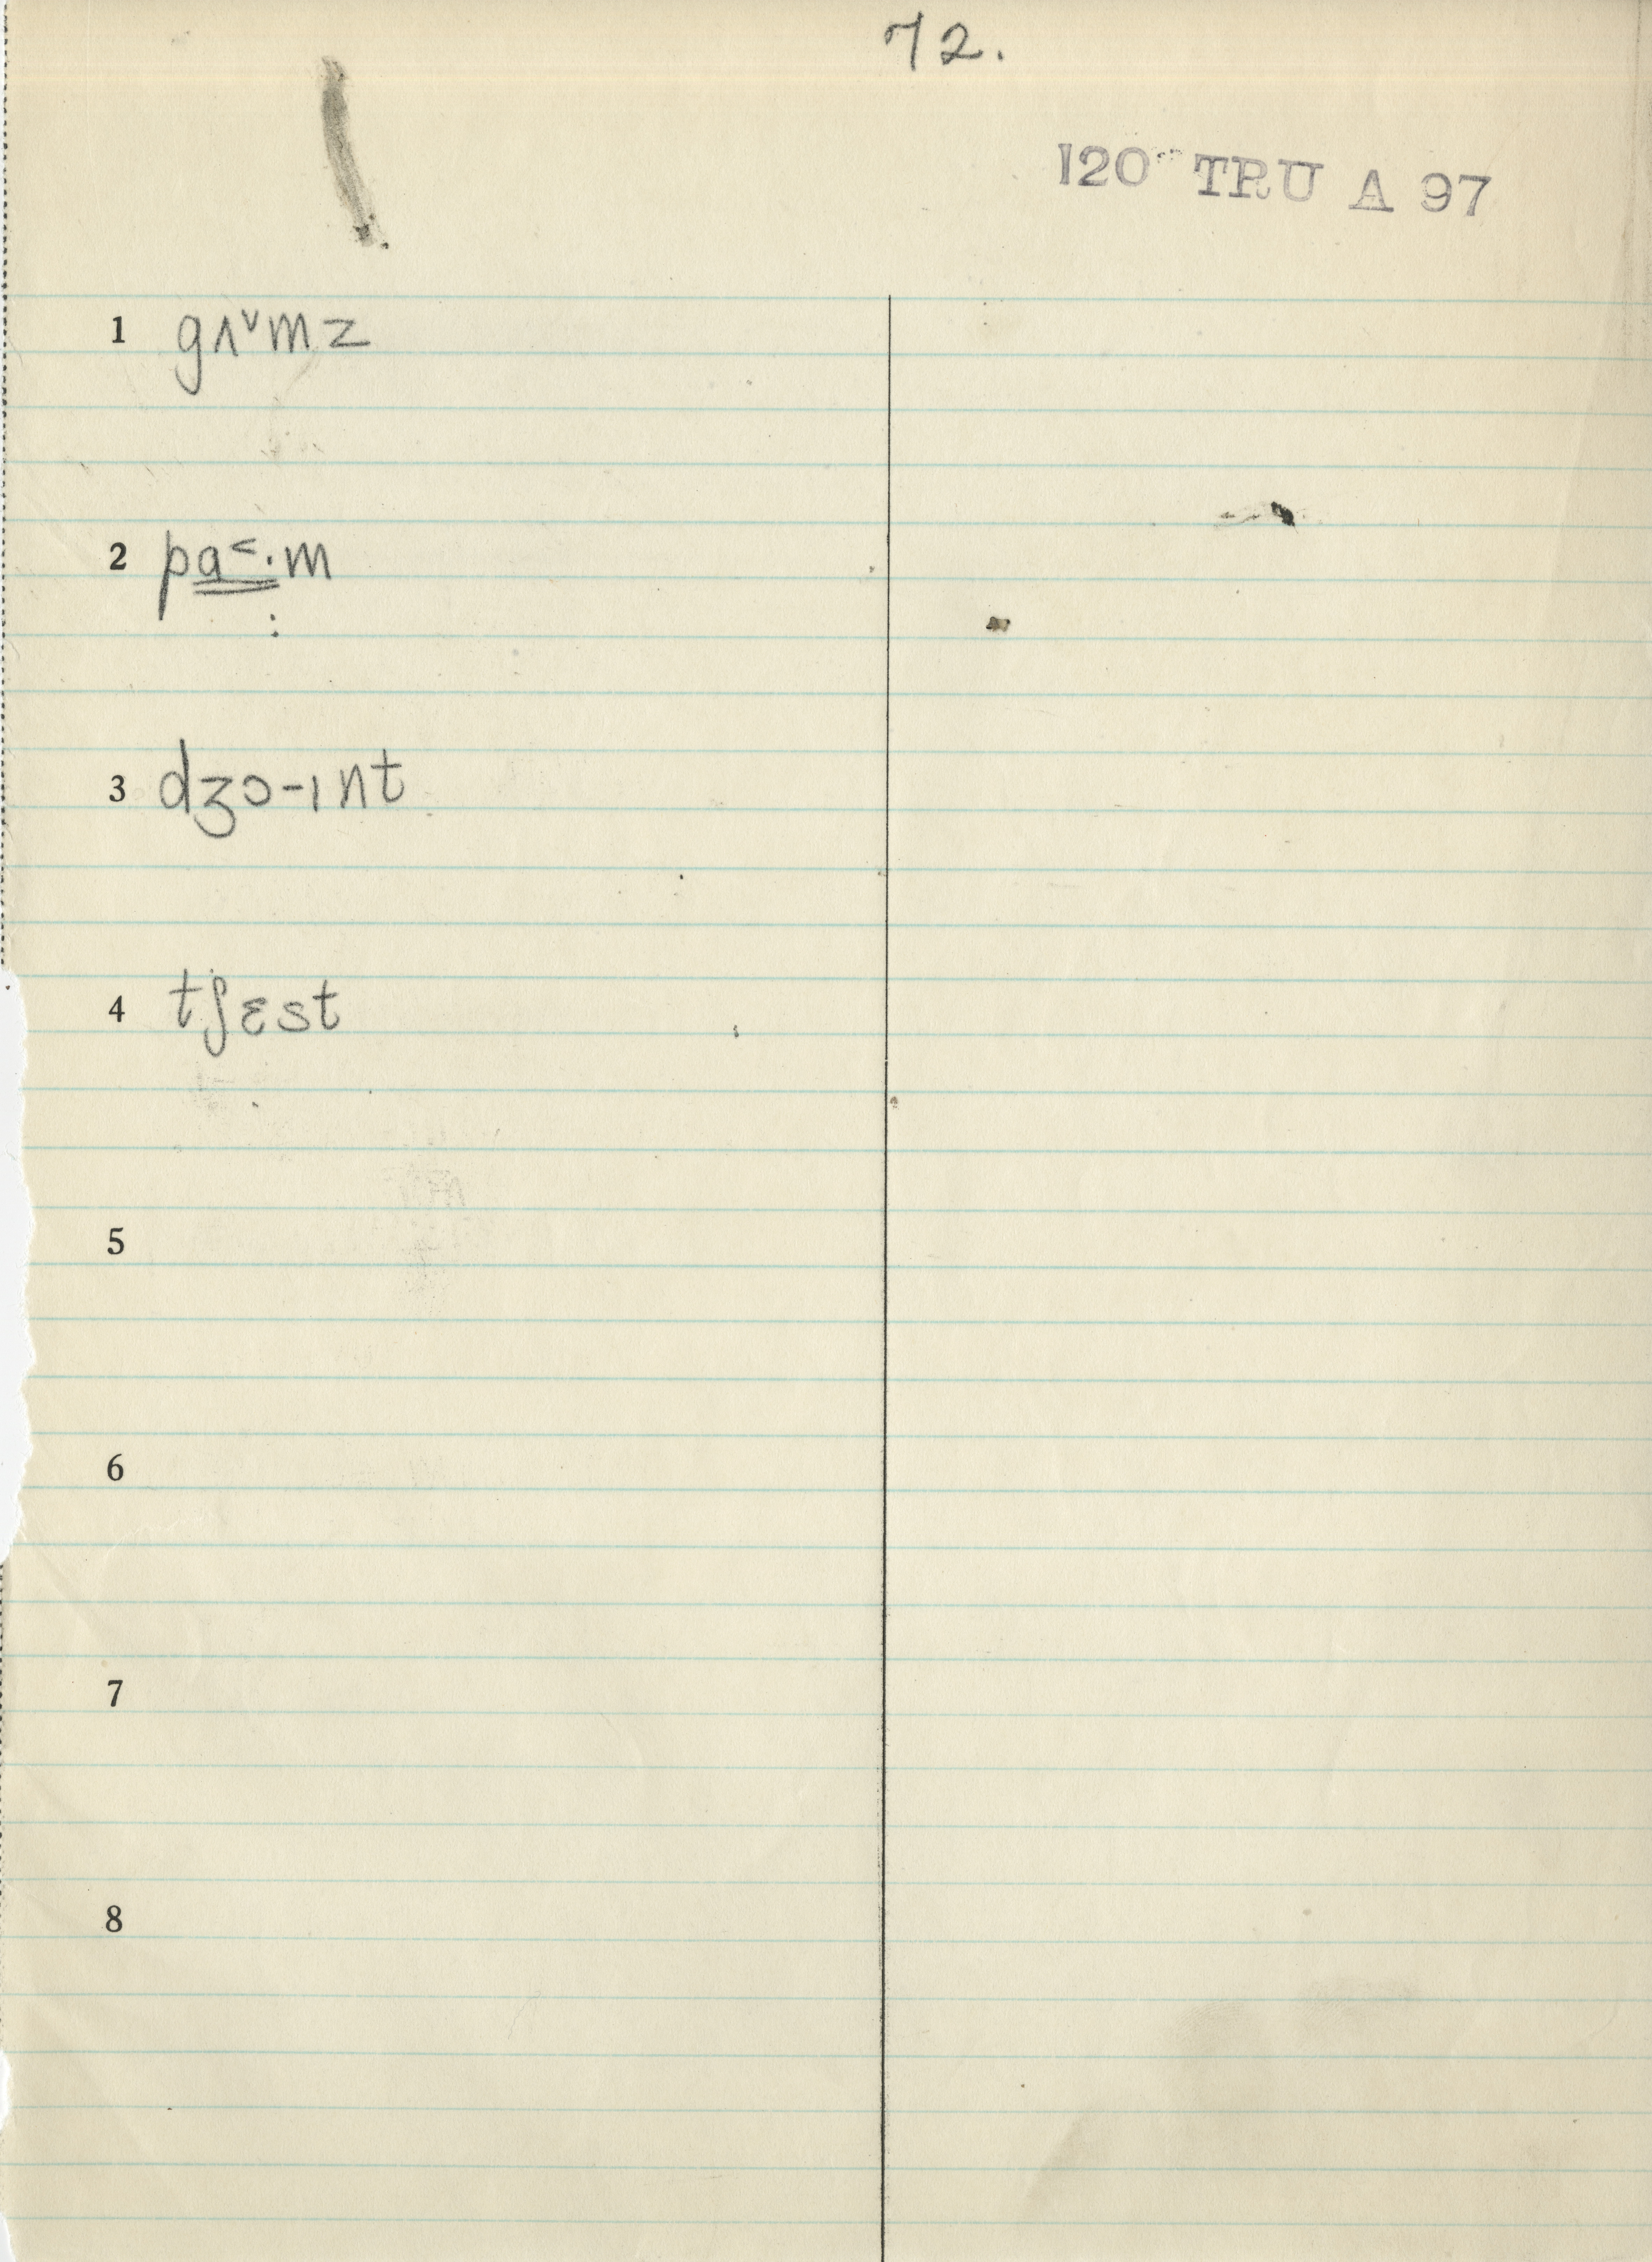 72.
120 TRU A 97
1 gʌ˅mz
2 pa˂·m
3 dʒɔ-ɪnt
4 tʃɛst
5
6
7
8